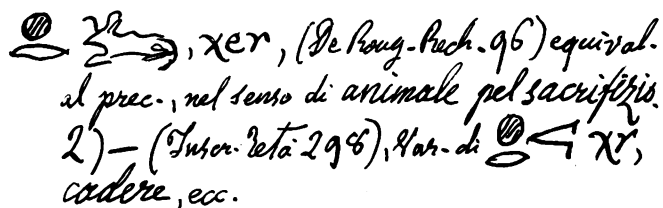 𓐍𓂋, χer, (De Roug-Rech-96) equival.
al prec., nel senso di animale pel sacrifizio.
2)— (Inscr. Letà 298), Var. di 𓐍𓂋 χr,
cadere, ecc.